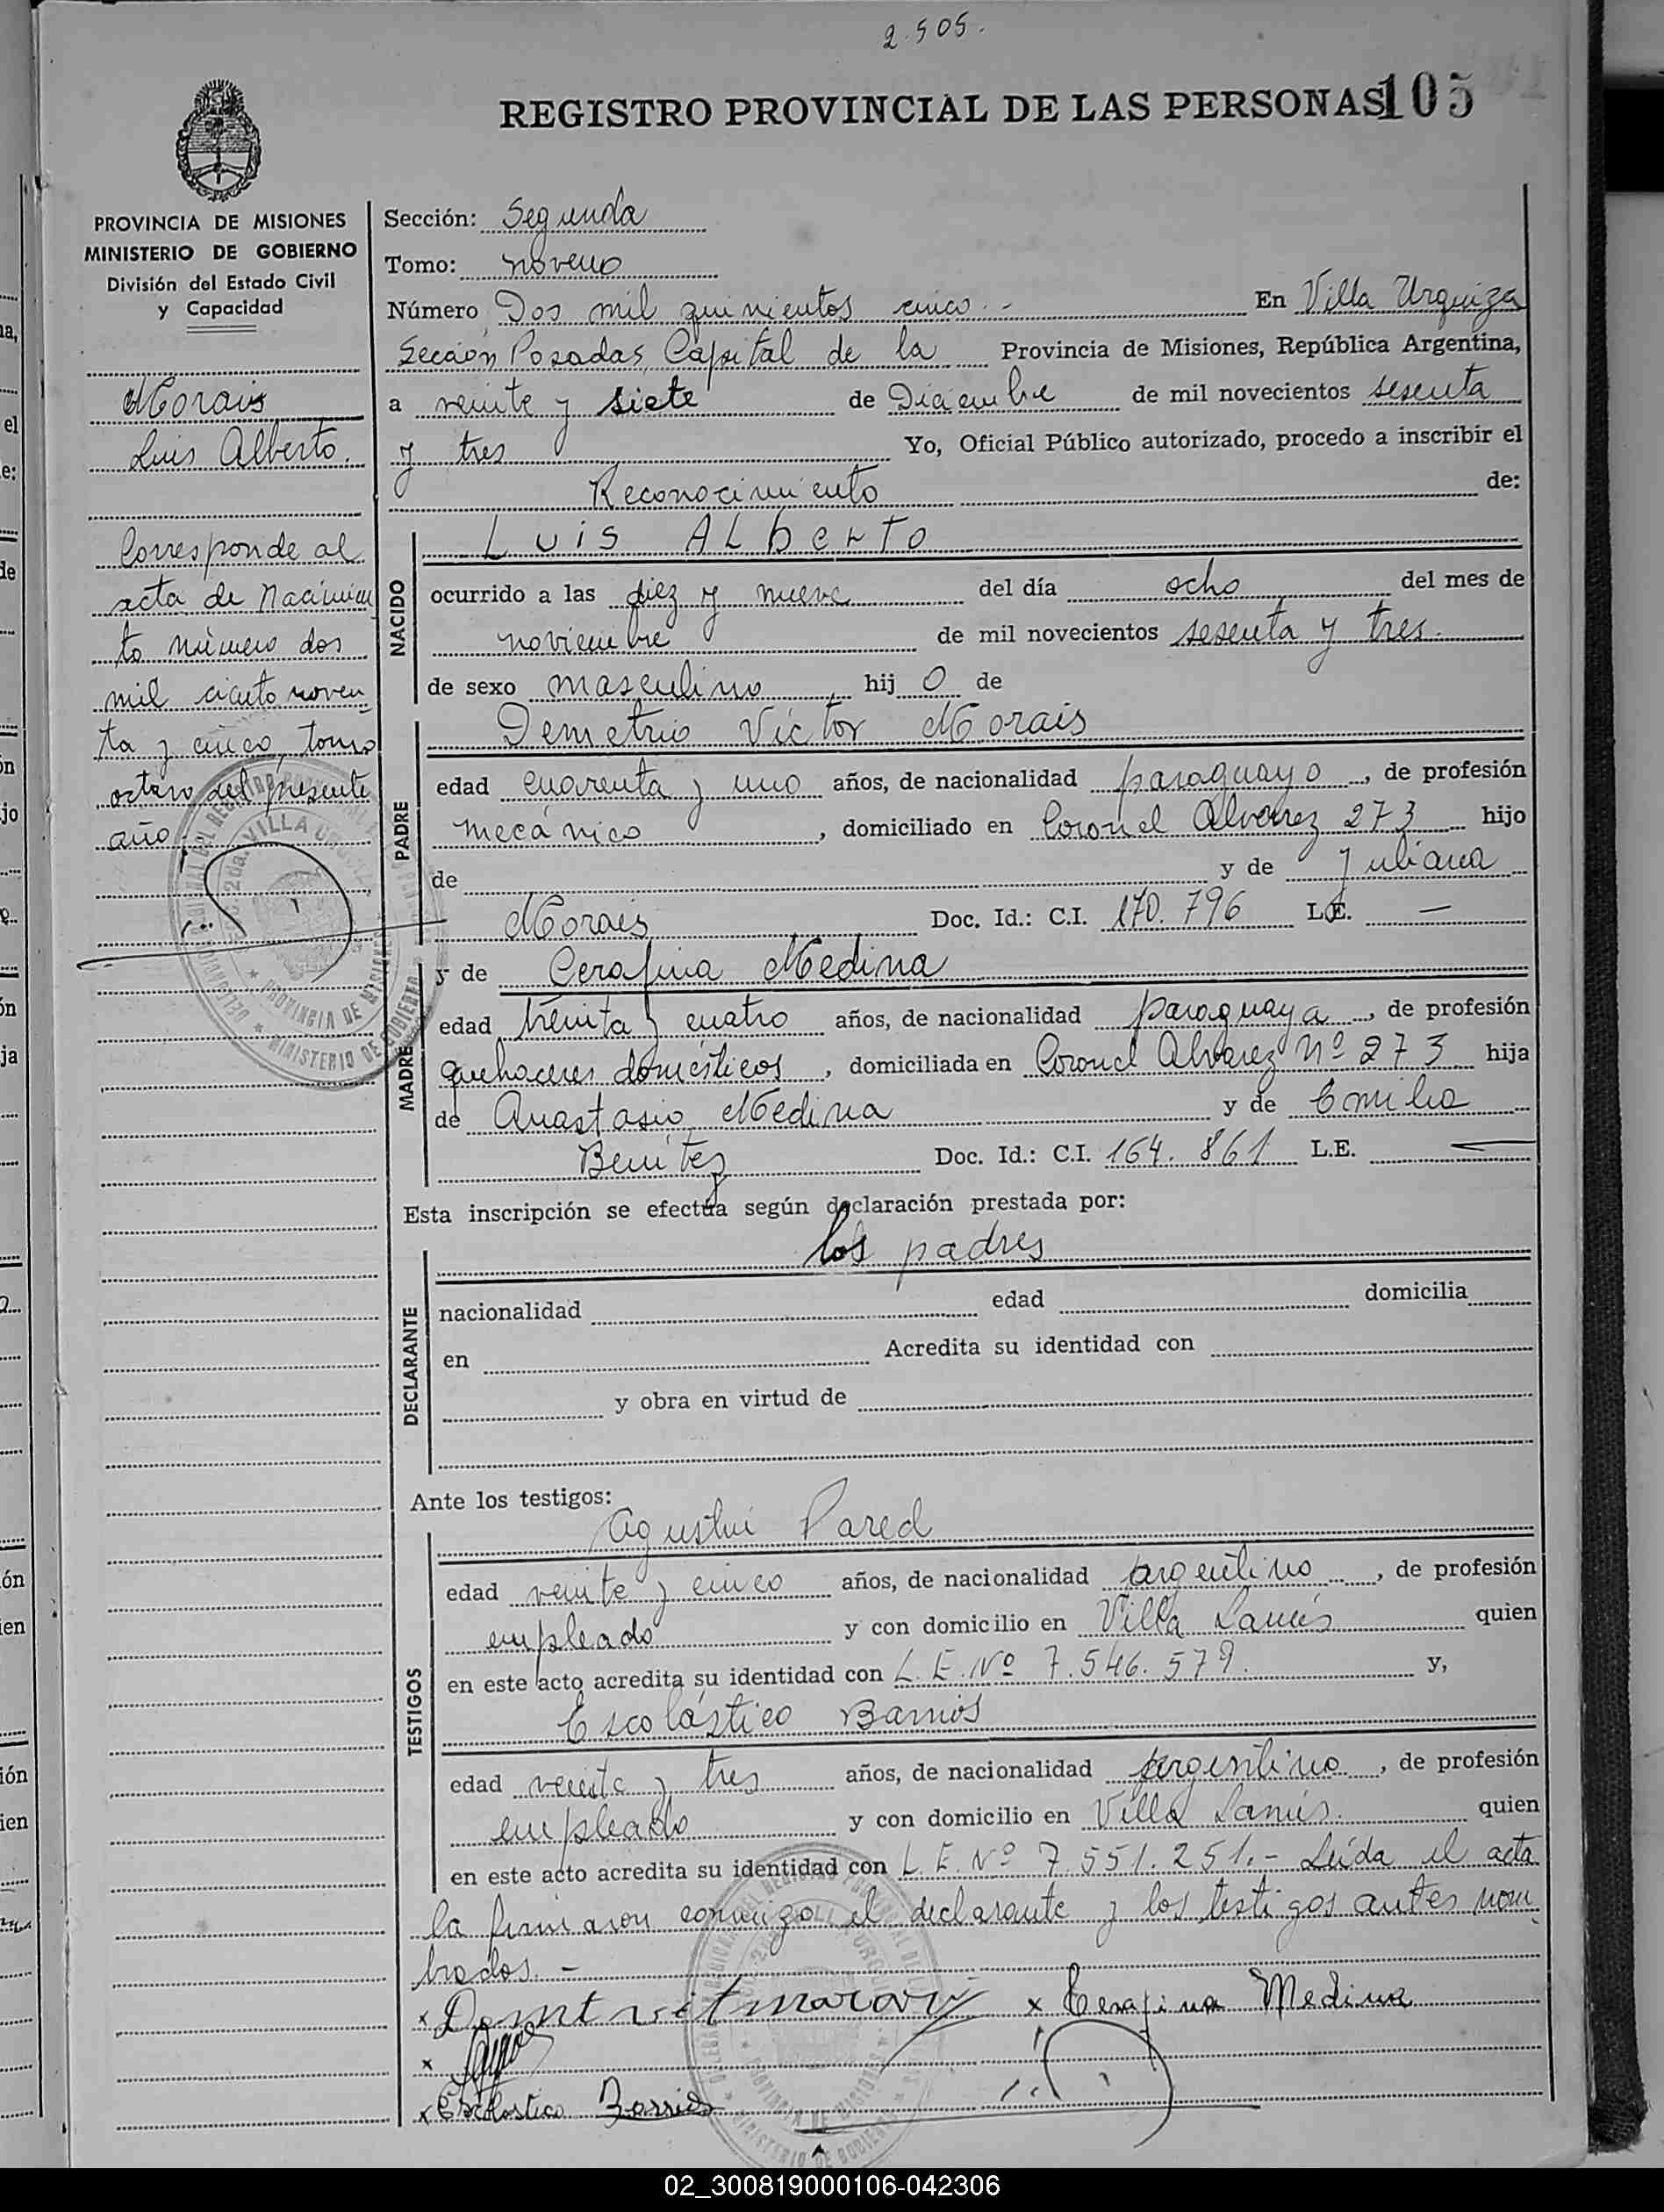 2.505.
REGISTRO PROVINCIAL DE LAS PERSONAS 105
PROVINCIA DE MISIONES
MINISTERIO DE GOBIERNO
División del Estado Civil
y Capacidad
Morais
Luis Alberto.
Corresponde al
acta de Nacimien
to número dos
mil ciento noven
ta y cinco, tomo
octavo del presente
año.
Sección: Segunda
Tomo: noveno
Número Dos mil quinientos cinco.- En Villa Urquiza
Sección Posadas, Capital de la Provincia de Misiones, República Argentina,
a veinte y siete de Diciembre de mil novecientos sesenta
y tres Yo, Oficial Público autorizado, procedo a inscribir el
Reconocimiento de:
NACIDO
Luis ALberTo
ocurrido a las diez y nueve del día ocho del mes de
noviembre de mil novecientos sesenta y tres.
de sexo masculino, hij o de
PADRE
Demetrio Victor Morais
edad cuarenta y uno años, de nacionalidad paraguayo, de profesión
mecánico, domiciliado en Coronel Alvarez 273 hijo
de y de Juliana
Morais Doc. Id.: C.I. 170.796 L.E. —
MADRE
y de Cerafina Medina
edad treinta y cuatro años, de nacionalidad paraguaya, de profesión
quehaceres domésticos, domiciliada en Coronel Alvarez Nº 273 hija
de Anastasio Medina y de Emilia
Benitez Doc. Id.: C.I. 164.861 L.E. —
Esta inscripción se efectúa según declaración prestada por:
DECLARANTE
los padres
nacionalidad edad domicilia
en Acredita su identidad con
y obra en virtud de
Ante los testigos:
TESTIGOS
Agustin Pared
edad veinte y cinco años, de nacionalidad argentino, de profesión
empleado y con domicilio en Villa Lanús quien
en este acto acredita su identidad con L.E.Nº 7.546.579. y,
Escolástico Barrios
edad veinte y tres años, de nacionalidad argentino, de profesión
empleado y con domicilio en Villa Lanús. quien
en este acto acredita su identidad con L.E.Nº 7.551.251.- Leída el acta
la firmaron conmigo el declarante y los testigos antes nom
brados.-
x x Cerafina Medina
x
x Escolastico Barrios
02_300819000106-042306